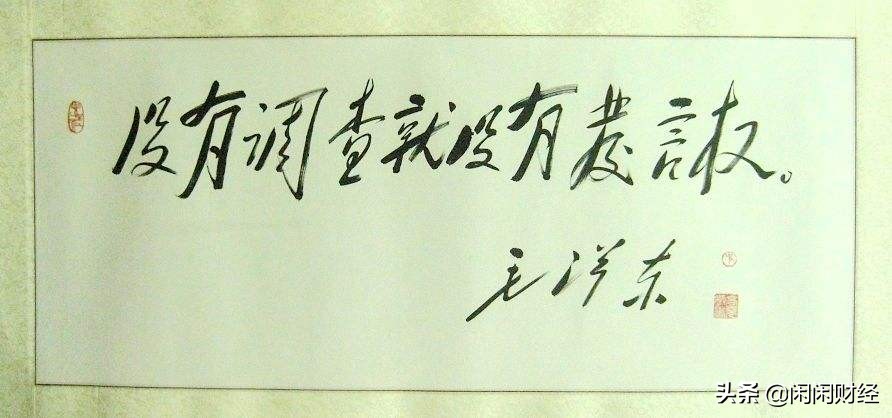 没有调查就没有發言权。
毛泽东
头条 @闲闲财经